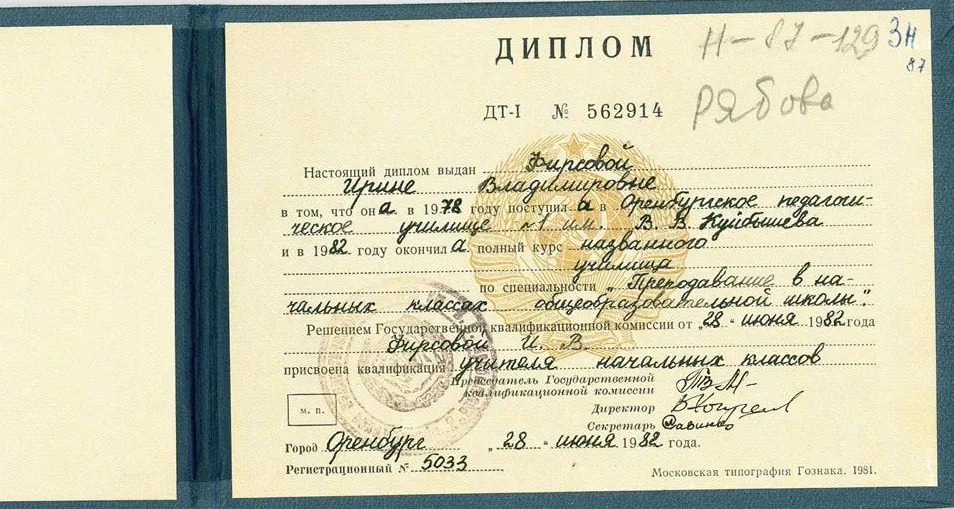 ДИПЛОМ
Н-87-129
ЗН
87
ДТ-I № 562914
Рябова
Настоящий диплом выдан Фирсовой
Ирине Владимировне
в том, что она в 1978 году поступила в Оренбургское педагоги-
ческое училище №1 им. В. В. Куйбышева
и в 1982 году окончила полный курс названного
училища
по специальности „Преподавание в на-
чальных классах общеобразовательной школы."
Решением Государственной квалификационной комиссии от „28" июня 1982 года
Фирсовой И. В.
присвоена квалификация учителя начальных классов
Председатель Государственной
квалификационной комиссии
Директор
Секретарь Савинко
м. п.
Город Оренбург „28" июня 1982 года.
Регистрационный № 5033
Московская типография Гознака. 1981.